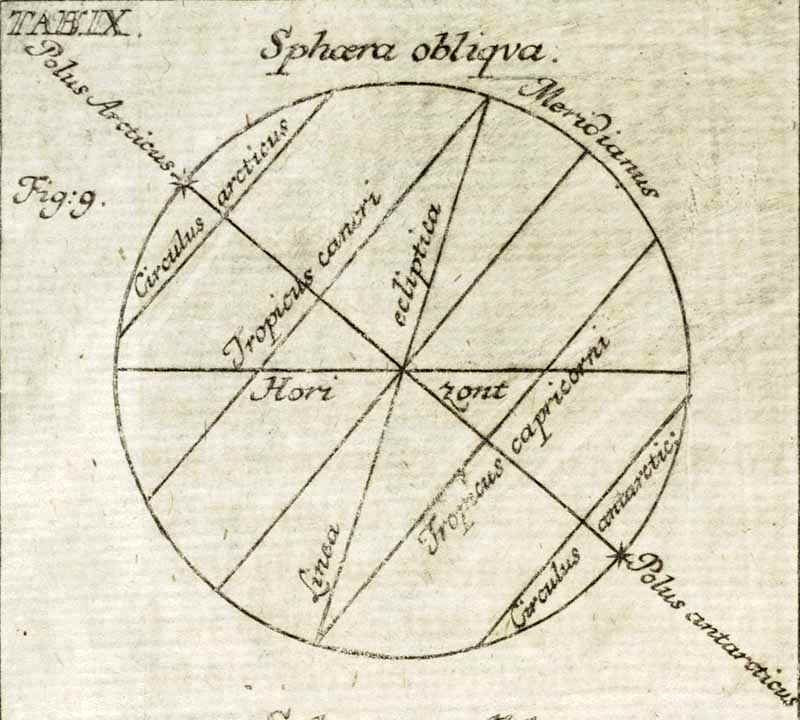 TAB.IX.
Sphæra obliqva.
Polus Arcticus
Meridianus
Fig: 9.
Circulus arcticus
Tropicus cancri
ecliptica
Hori zont
Tropicus capricorni
Linea
Circulus antarctic:
Polus antarcticus